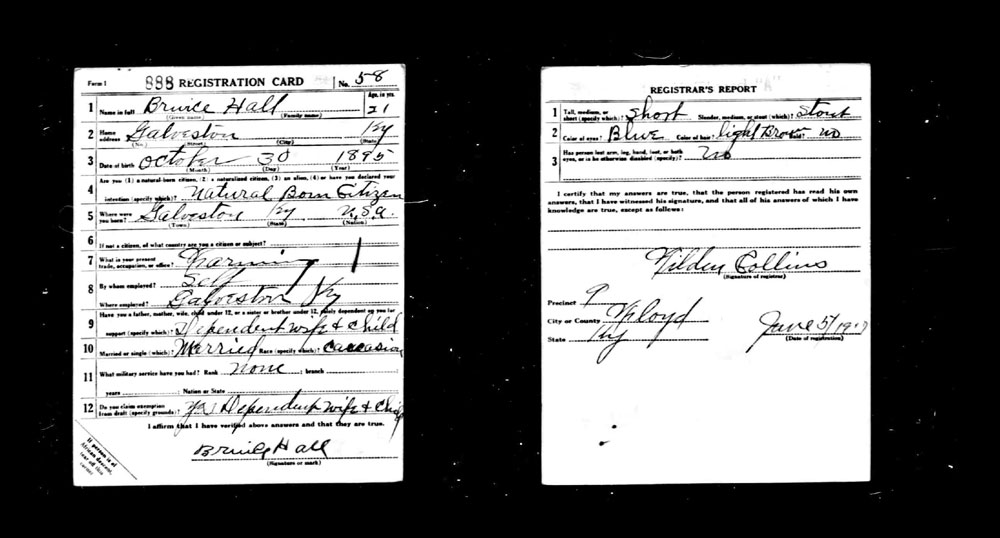 Form 1 888 REGISTRATION CARD No. 58
Age, in yrs.
1 Name in full Bruice Hall 21
(Given name) (Family name)
2 Home address Galveston Ky
(No.) (Street) (City) (State)
3 Date of birth October 30 1895
(Month) (Day) (Year)
4 Are you (1) a natural-born citizen, (2) a naturalized citizen, (3) an alien, (4) or have you declared your
intention (specify which)? Natural Born Citizen
5 Where were you born? Galveston Ky U.S.a.
(Town) (State) (Nation)
6 If not a citizen, of what country are you a citizen or subject?
7 What is your present trade, occupation, or office? Farming
8 By whom employed? Self
Where employed? Galveston Ky
9 Have you a father, mother, wife, child under 12, or a sister or brother under 12, solely dependent on you for
support (specify which)? Dependent wife & Child
10 Married or single (which)? Married Race (specify which)? Caucasion
11 What military service have you had? Rank none ; branch
years ; Nation or State
12 Do you claim exemption from draft (specify grounds)? Yes Dependent wife & Child
I affirm that I have verified above answers and that they are true.
Bruice Hall
(Signature or mark)
If person is of
African descent,
tear off this
corner.
REGISTRAR'S REPORT
1 Tall, medium, or short (specify which)? Short Slender, medium, or stout (which)? Stout
2 Color of eyes? Blue Color of hair? light Brown Bald? no
3 Has person lost arm, leg, hand, foot, or both
eyes, or is he otherwise disabled (specify)? No
I certify that my answers are true, that the person registered has read his own
answers, that I have witnessed his signature, and that all of his answers of which I have
knowledge are true, except as follows:
Collins
(Signature of registrar)
Precinct 9
City or County Floyd
State Ky
June 5/1917
(Date of registration)